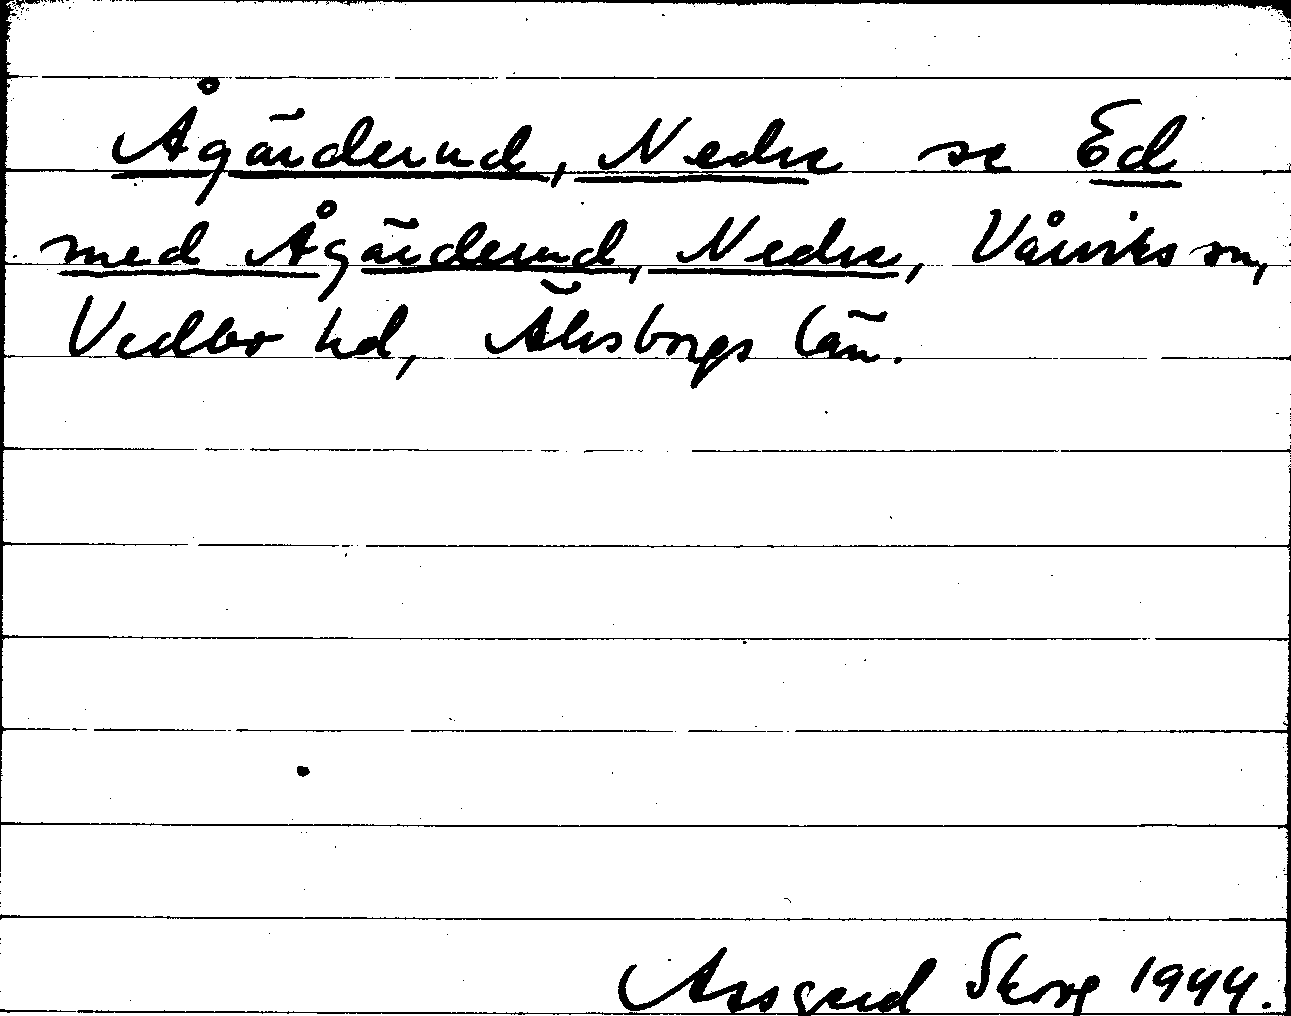 Ågärderud, Nedre se Ed
med Ågärderud, Nedre, Vårviks sn,
Vedbo hd, Älvsborgs län.
Assgerd Skorg 1944.